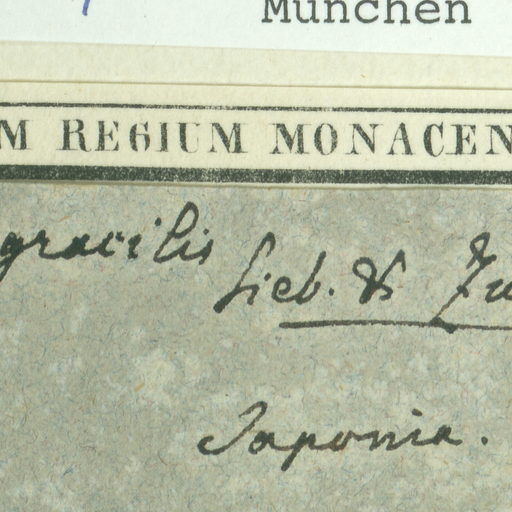 München
M REGIUM MONACEN
gracilis
Sieb. & Zu
Japonia.